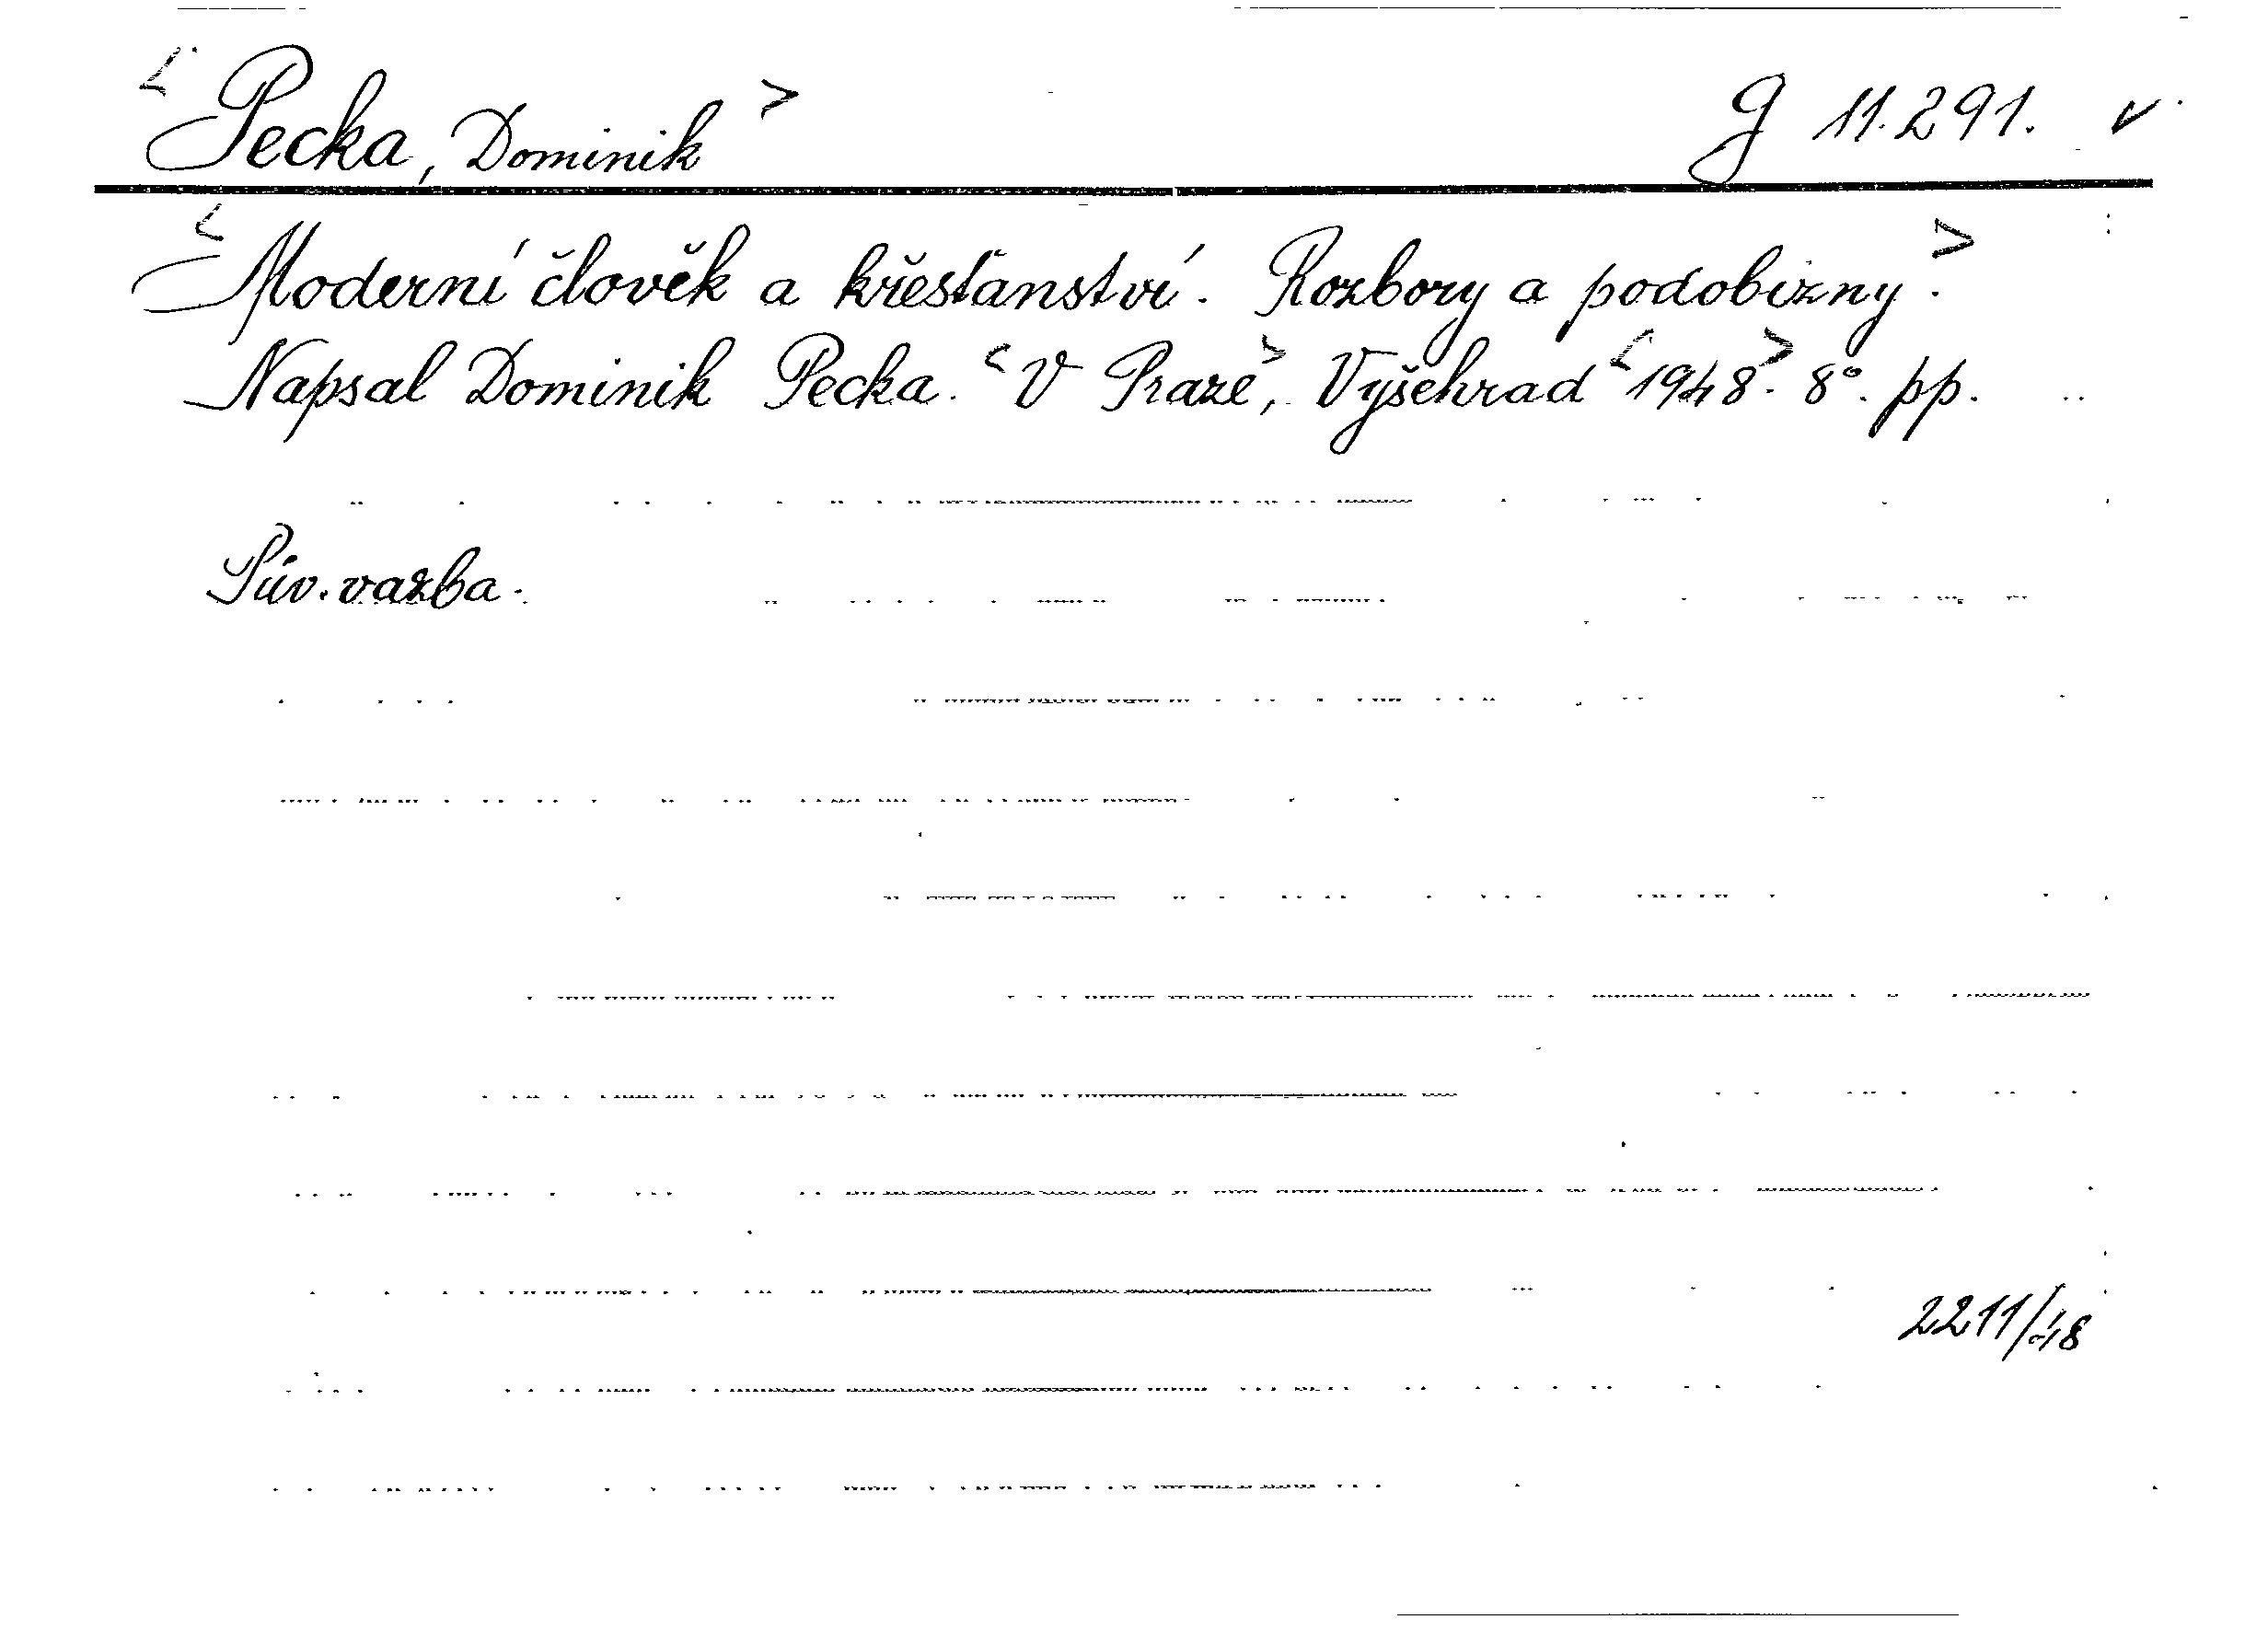 <Pecka, Dominik> g 11.291. v
<Moderní člověk a křesťanství. Rozbory a podobizny.>
Napsal Dominik Pecka. <V Praze>, Vyšehrad <1948>. 8°. pp.
Pův. vazba.
2211/48